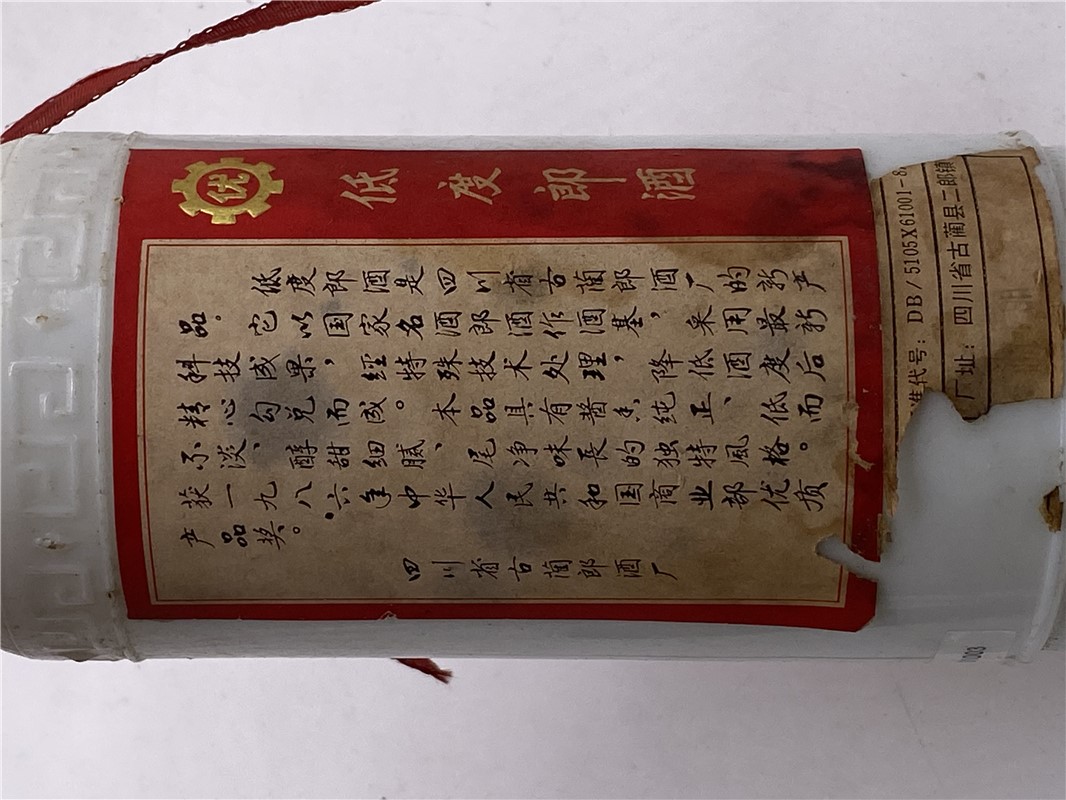 优
低度郎酒
低度郎酒是四川省古蔺郎酒厂的新产
品。它以国家名酒郎酒作酒基，采用最新
科技成果，經特殊技术处理，降低酒度后
精心勾兑而成。本品具有酱香纯正、低而
不淡、醇甜细腻、尾净味長的独特風格。
获一九八六年中华人民共和国商业部优质
产品奖。
四川省古蔺郎酒厂
准代号：DB/5105X61001-8
厂址：四川省古蔺县二郎镇